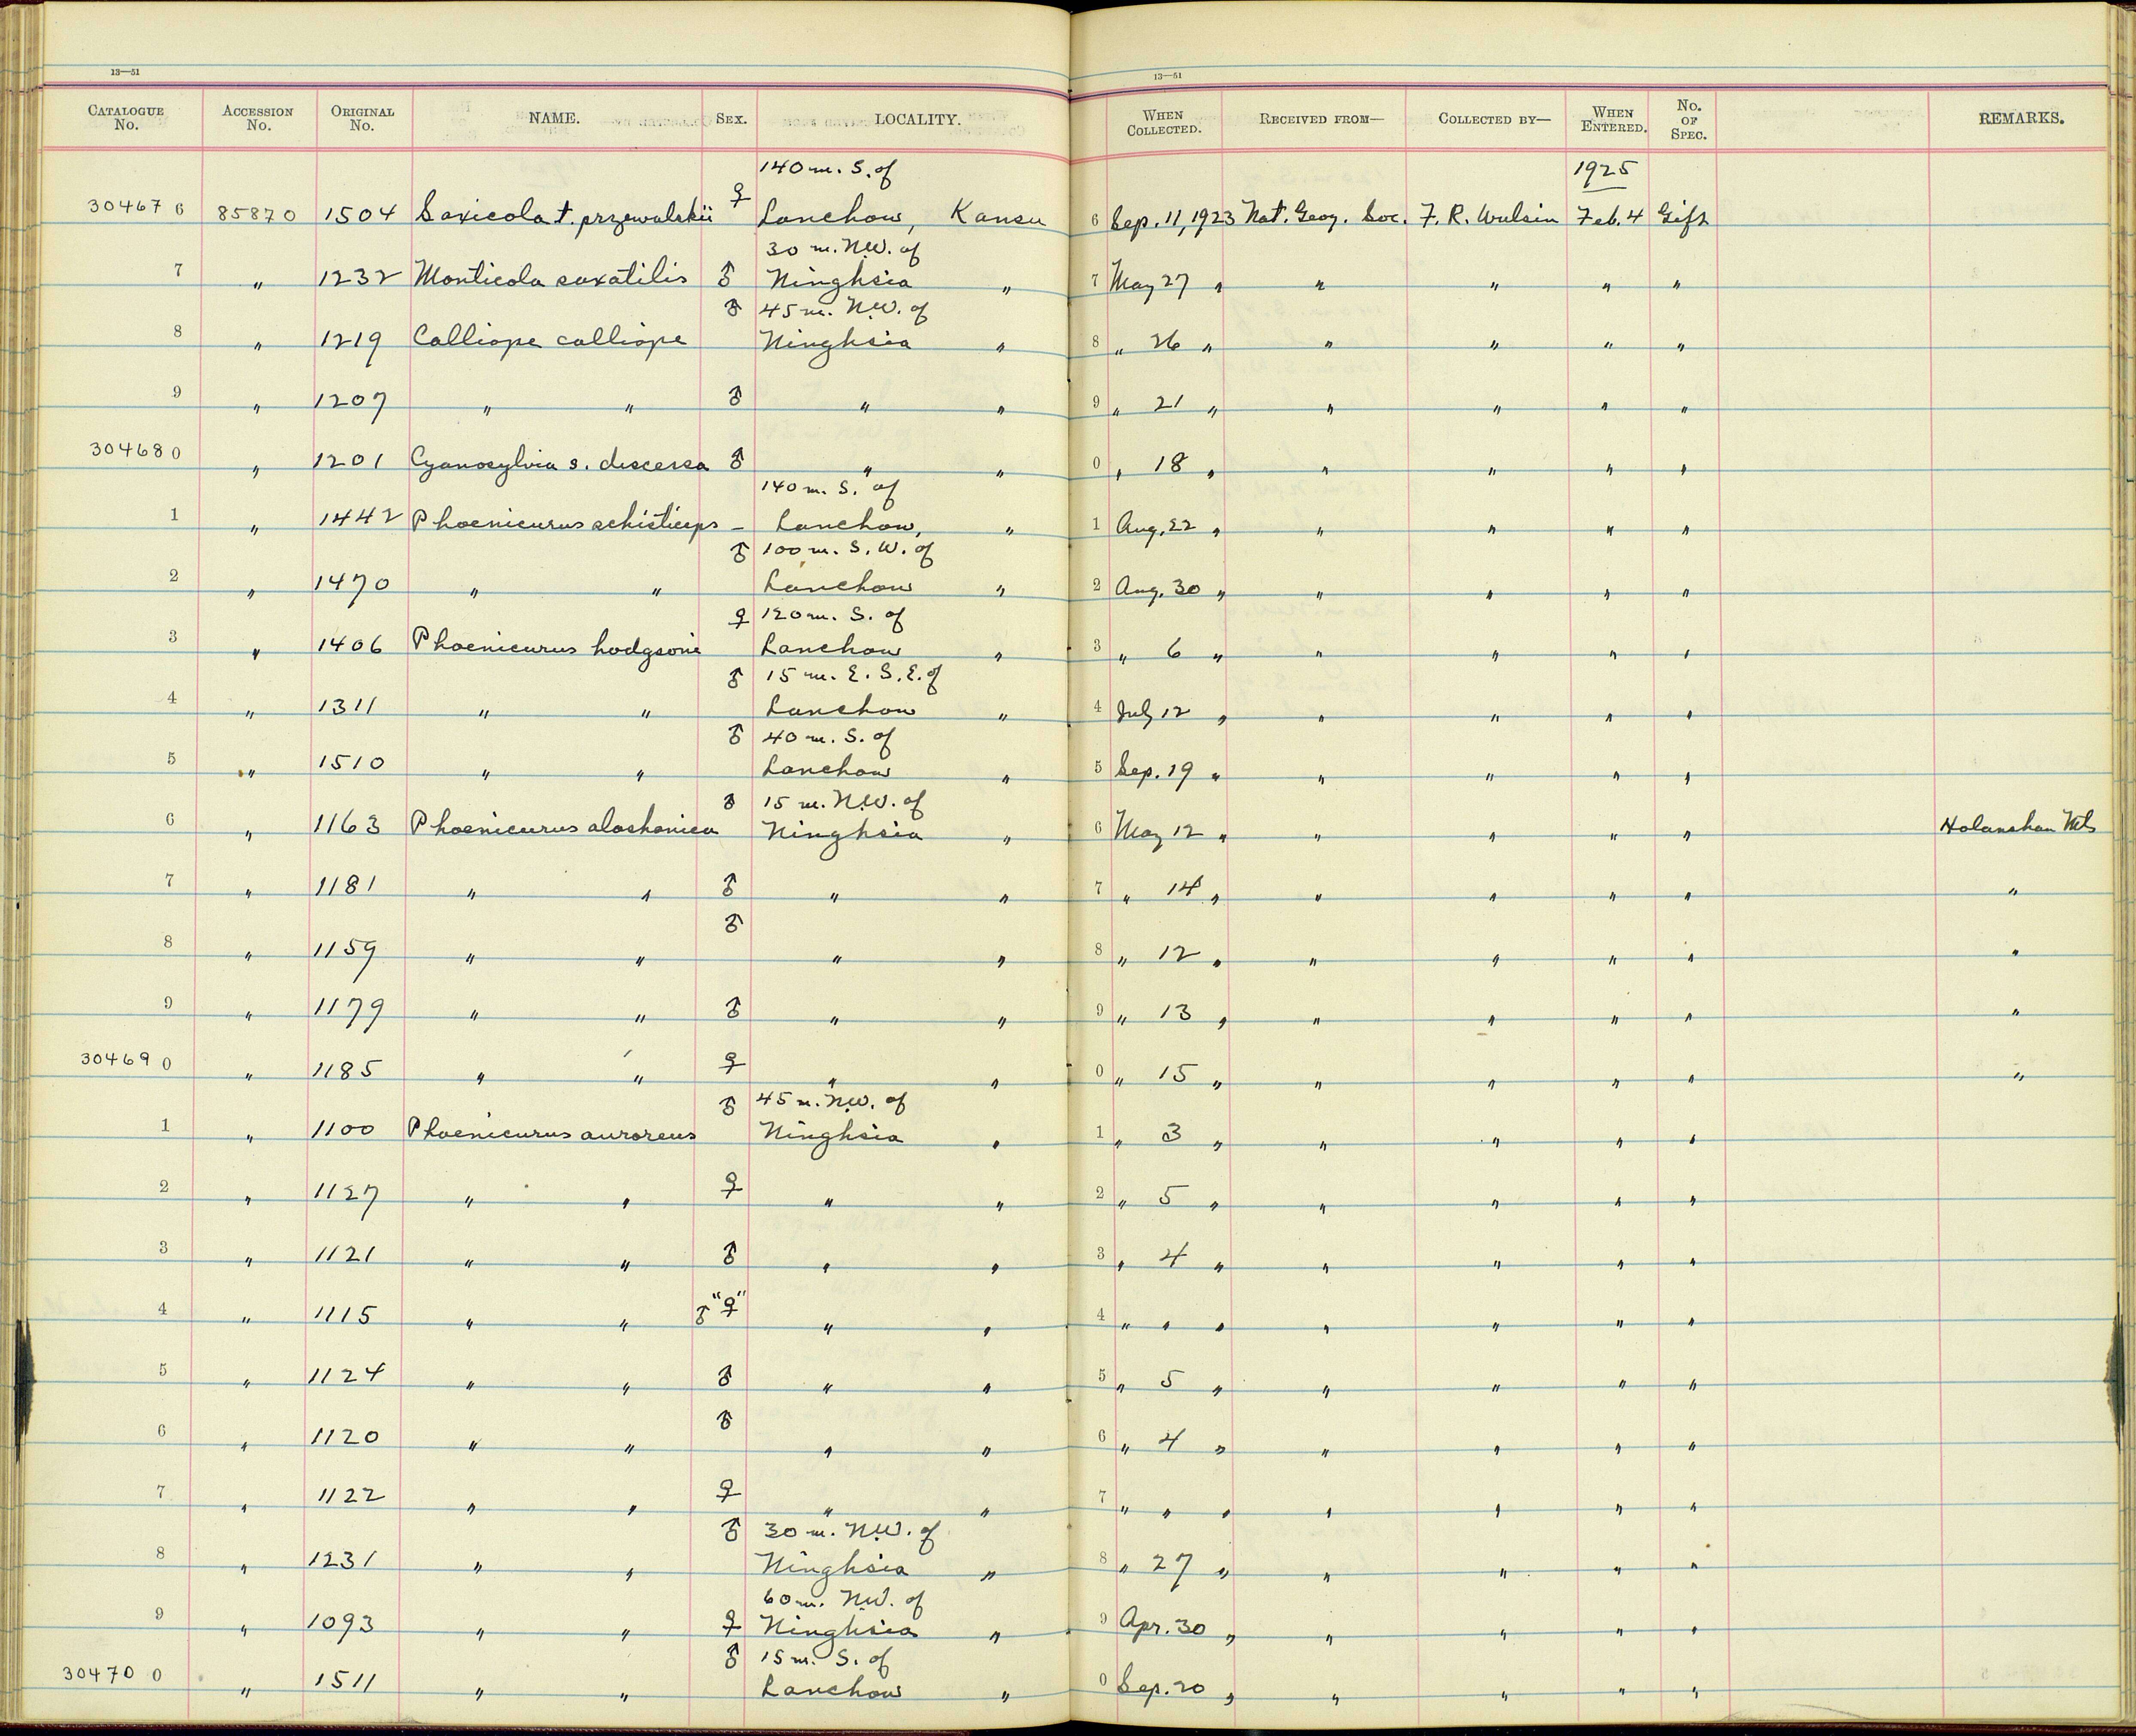 13—51
13—51
CATALOGUE No. ACCESSION No. ORIGINAL No. NAME. SEX. LOCALITY. WHEN COLLECTED. RECEIVED FROM— COLLECTED BY— WHEN ENTERED. No. OF SPEC. REMARKS.
140 m. S. of 1925
30467 6 85870 1504 Saxicola t. przewalskii ♀ Lanchow, Kansu 6 Sep. 11, 1923 Nat. Geog. Soc. F. R. Wulsin Feb. 4 Gift
30 m. N.W. of
7 " 1232 Monticola saxatilis ♂ Ninghsia " 7 May 27 " " " " "
♂ 45 m. N.W. of
8 " 1219 Calliope calliope Ninghsia " 8 " 26 " " " " "
9 " 1207 " " ♂ " " 9 " 21 " " " " "
30468 0 " 1201 Cyanosylvia s. discessa ♂ " " 0 " 18 " " " " "
140 m. S. of
1 " 1442 Phoenicurus schisticeps – Lanchow, " 1 Aug. 22 " " " " "
♂ 100 m. S. W. of
2 " 1470 " " Lanchow " 2 Aug. 30 " " " " "
♀ 120 m. S. of
3 " 1406 Phoenicurus hodgsoni Lanchow " 3 " 6 " " " " "
♂ 15 m. E. S. E. of
4 " 1311 " " Lanchow " 4 July 12 " " " " "
♂ 40 m. S. of
5 " 1510 " " Lanchow " 5 Sep. 19 " " " " "
♂ 15 m. N.W. of
6 " 1163 Phoenicurus alashanica Ninghsia " 6 May 12 " " " " " Holanshan Mts
7 " 1181 " " ♂ " " 7 " 14 " " " " " "
8 " 1159 " " ♂ " " 8 " 12 " " " " " "
9 " 1179 " " ♂ " " 9 " 13 " " " " " "
30469 0 " 1185 " " ♀ " " 0 " 15 " " " " " "
♂ 45 m. N.W. of
1 " 1100 Phoenicurus auroreus Ninghsia " 1 " 3 " " " " "
2 " 1127 " " ♀ " " 2 " 5 " " " " "
3 " 1121 " " ♂ " " 3 " 4 " " " " "
4 " 1115 " " ♂ "♀" " " 4 " " " " " " "
5 " 1124 " " ♂ " " 5 " 5 " " " " "
6 " 1120 " " ♂ " " 6 " 4 " " " " "
7 " 1122 " " ♀ " " 7 " " " " " " "
♂ 30 m. N.W. of
8 " 1231 " " Ninghsia " 8 " 27 " " " " "
60 m. N.W. of
9 " 1093 " " ♀ Ninghsia " 9 Apr. 30 " " " " "
♂ 15 m. S. of
30470 0 " 1511 " " Lanchow " 0 Sep. 20 " " " " "